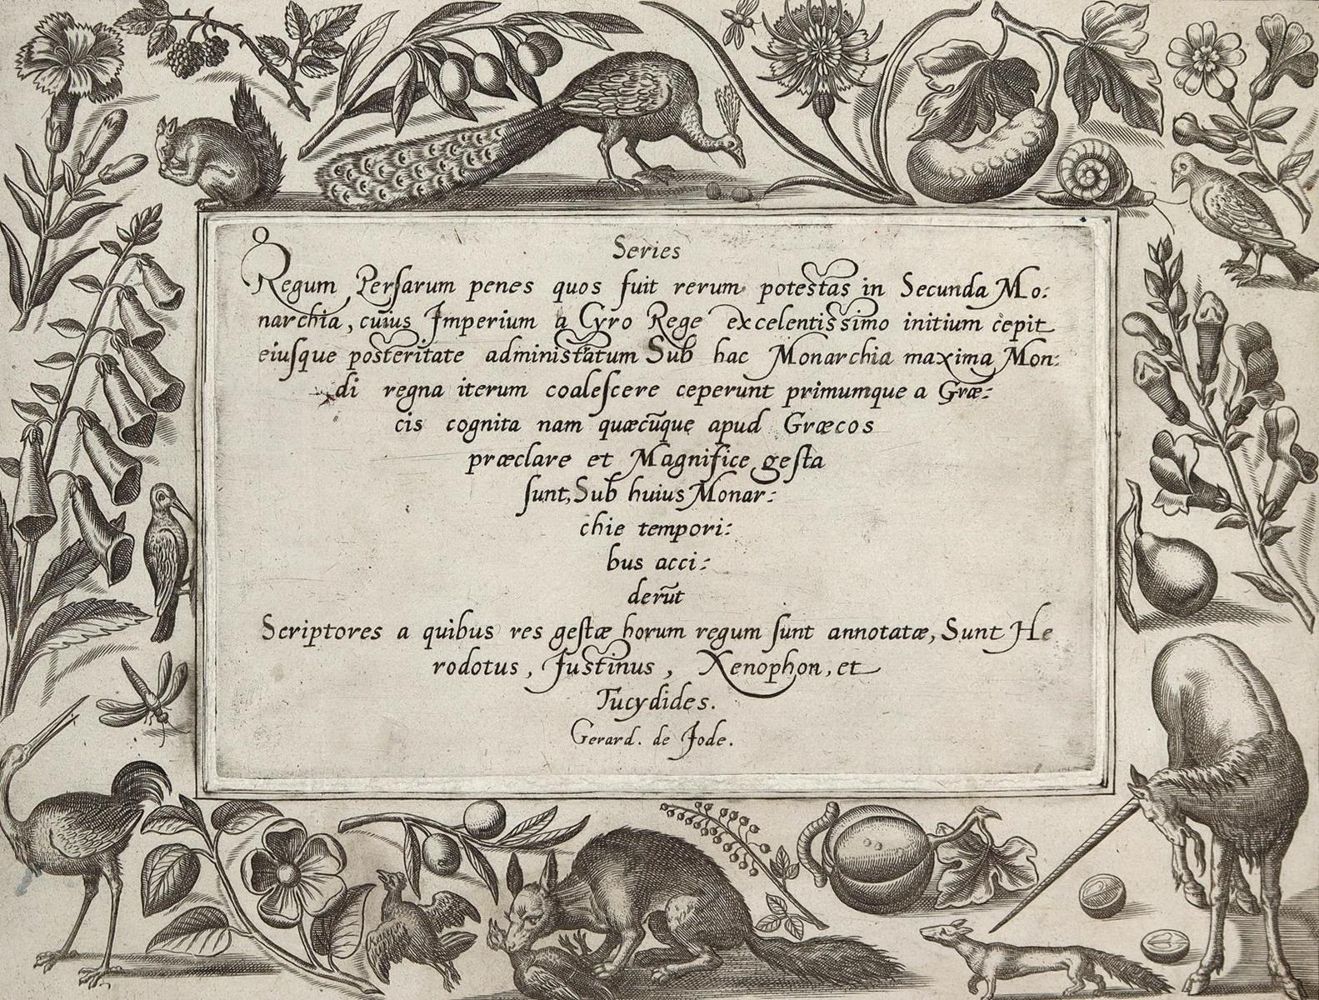 Series
Regum Perſarum penes quos fuit rerum potestas in Secunda Mo:
narchia, cuius Imperium a Cyro Rege excelentissimo initium cepit
eiuſque posteritate administatum Sub hac Monarchia maxima Mon:
di regna iterum coaleſcere ceperunt primumque a Græ:
cis cognita nam quæcūque apud Græcos
præclare et Magnifice geſta
ſunt, Sub huius Monar:
chie tempori:
bus acci:
derūt
Scriptores a quibus res geſtæ horum regum ſunt annotatæ, Sunt He
rodotus, Justinus, Xenophon, et
Tucydides.
Gerard. de Jode.